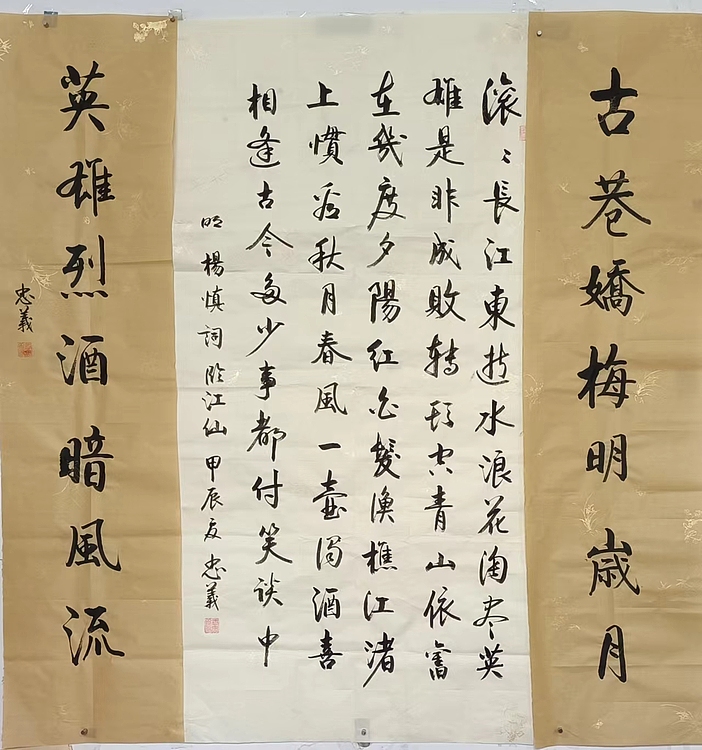 古巷嬌梅明歲月
滚〻長江東逝水浪花淘尽英
雄是非成敗轉頭空青山依舊
在幾度夕陽紅白髮漁樵江渚
上慣看秋月春風一壺濁酒喜
相逢古今多少事都付笑談中
明楊慎詞臨江仙甲辰夏忠義
英雄烈酒暗風流
忠義